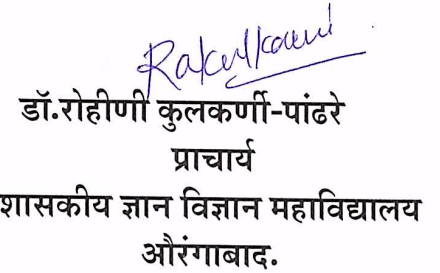 डॉ.रोहीणी कुलकर्णी-पांढरे
प्राचार्य
शासकीय ज्ञान विज्ञान महाविद्यालय
औरंगाबाद.